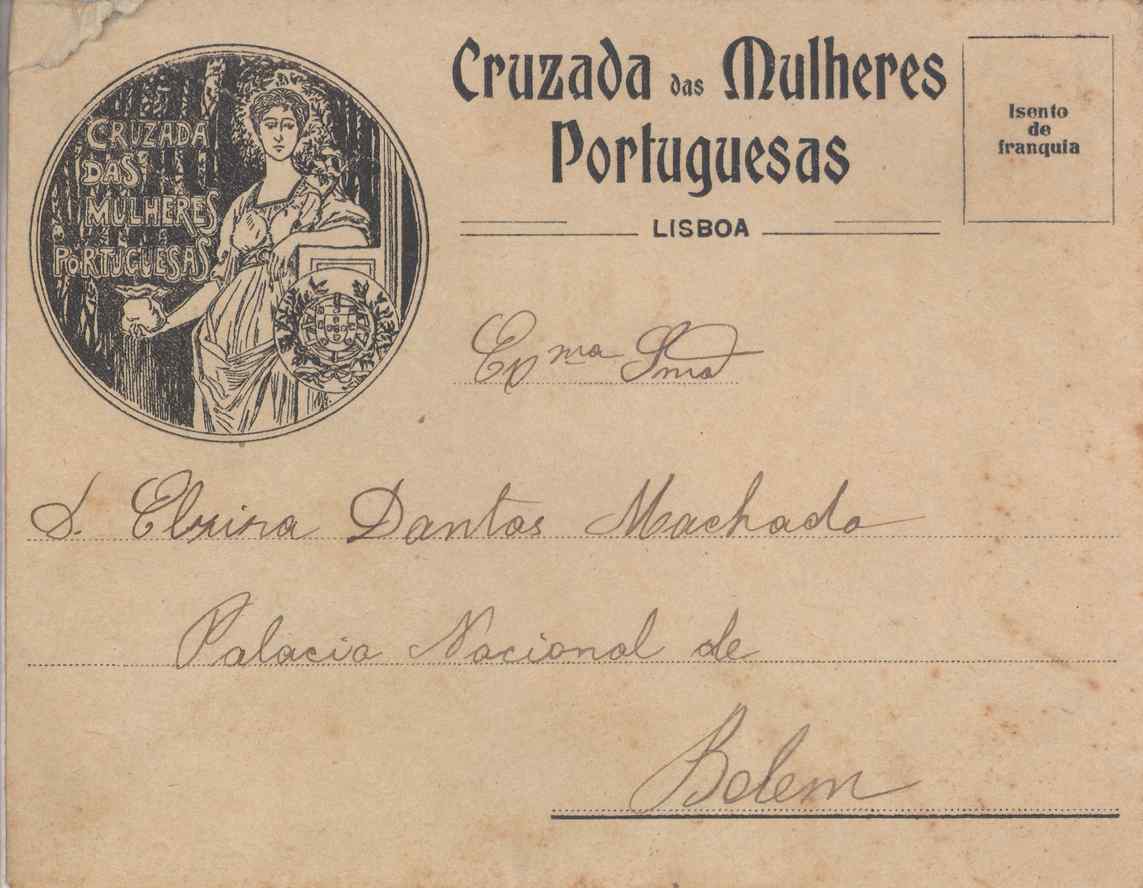 CRUZADA
DAS
MULHERES
PORTUGUESAS
Cruzada das Mulheres
Portuguesas
LISBOA
Isento
de
franquia
Exma Snra
D. Elvira Dantas Machado
Palacio Nacional de
Belem